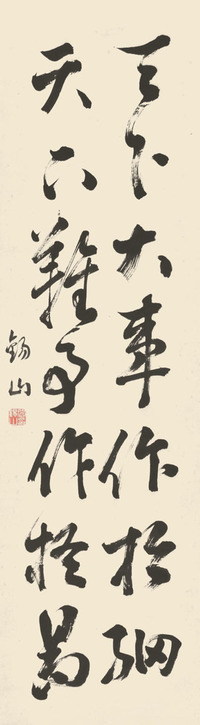 天下大事作於細
天下難事作於易
錫山